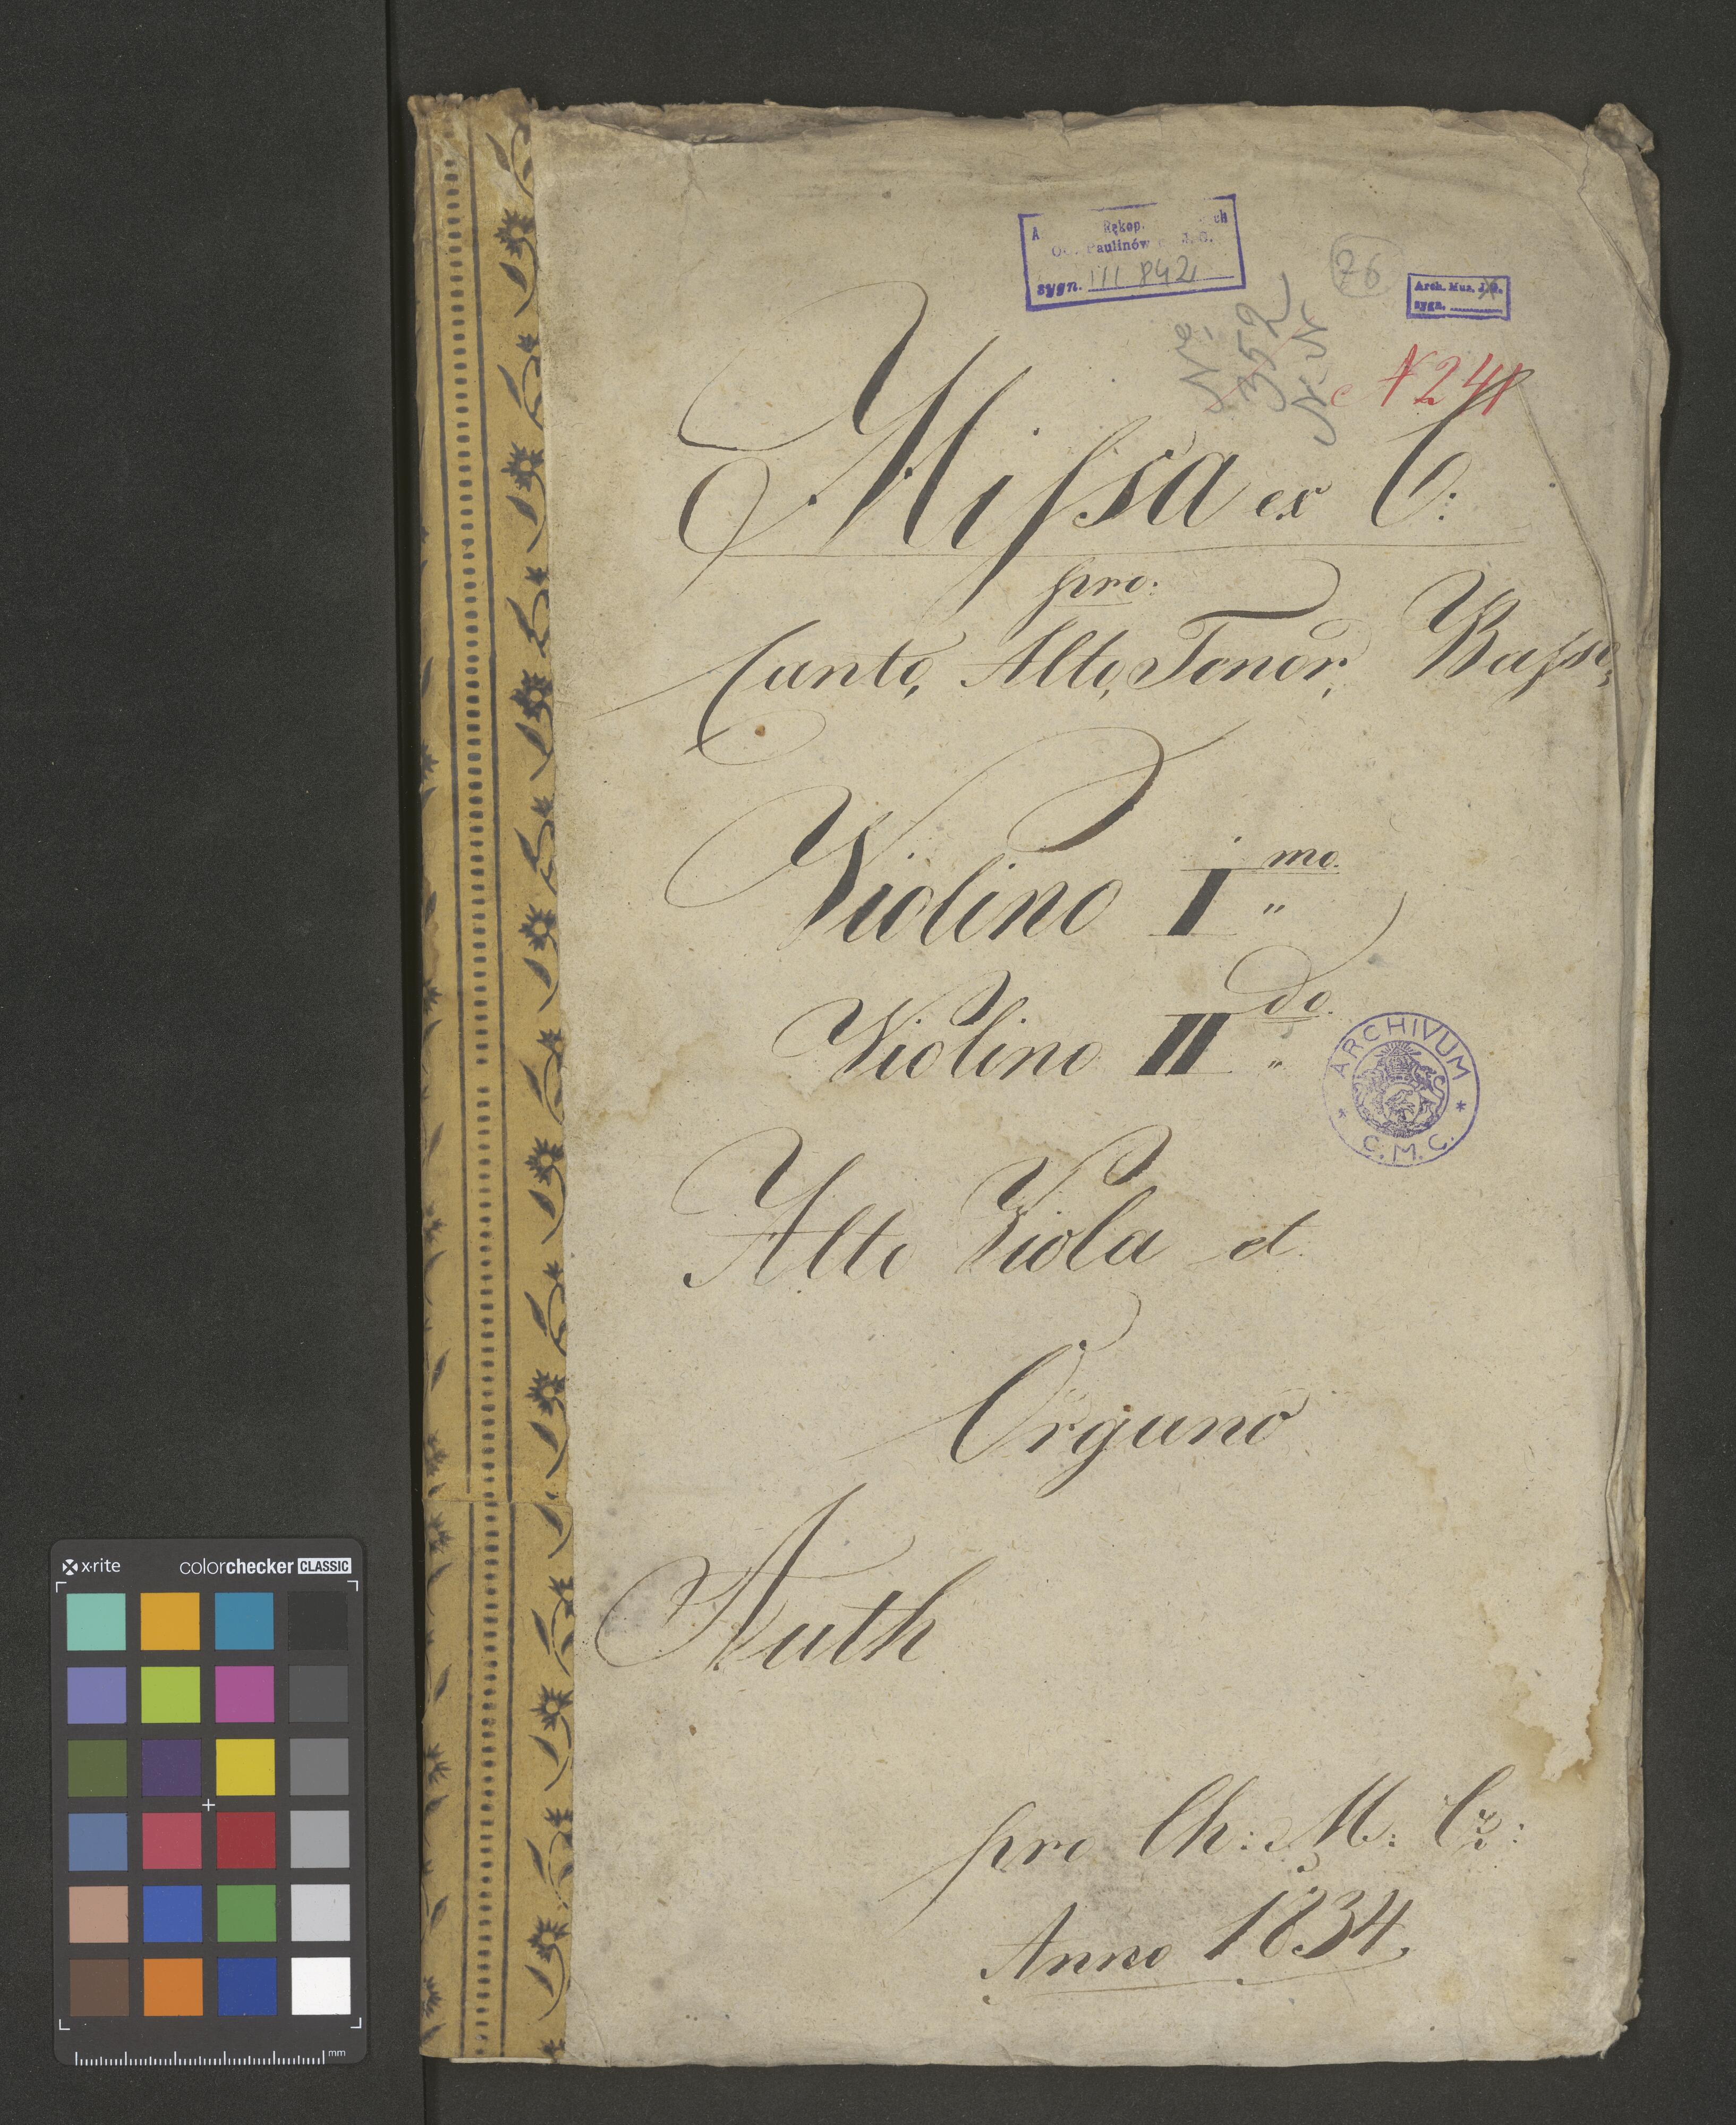 Rękop.
Paulinów
sygn. III 842
76
Arch. Mus. J.G.
sygn.
No.
352
N 241
Missa ex C:
pro:
Canto, Alto, Tenor, Basso,
Violino I mo. "
Violino II do. "
ARCHIVUM
C. M. C.
Alto Viola et
Organo
Auth
pro Ch: M: Cz:
Anno 1834.
x-rite colorchecker CLASSIC
mm